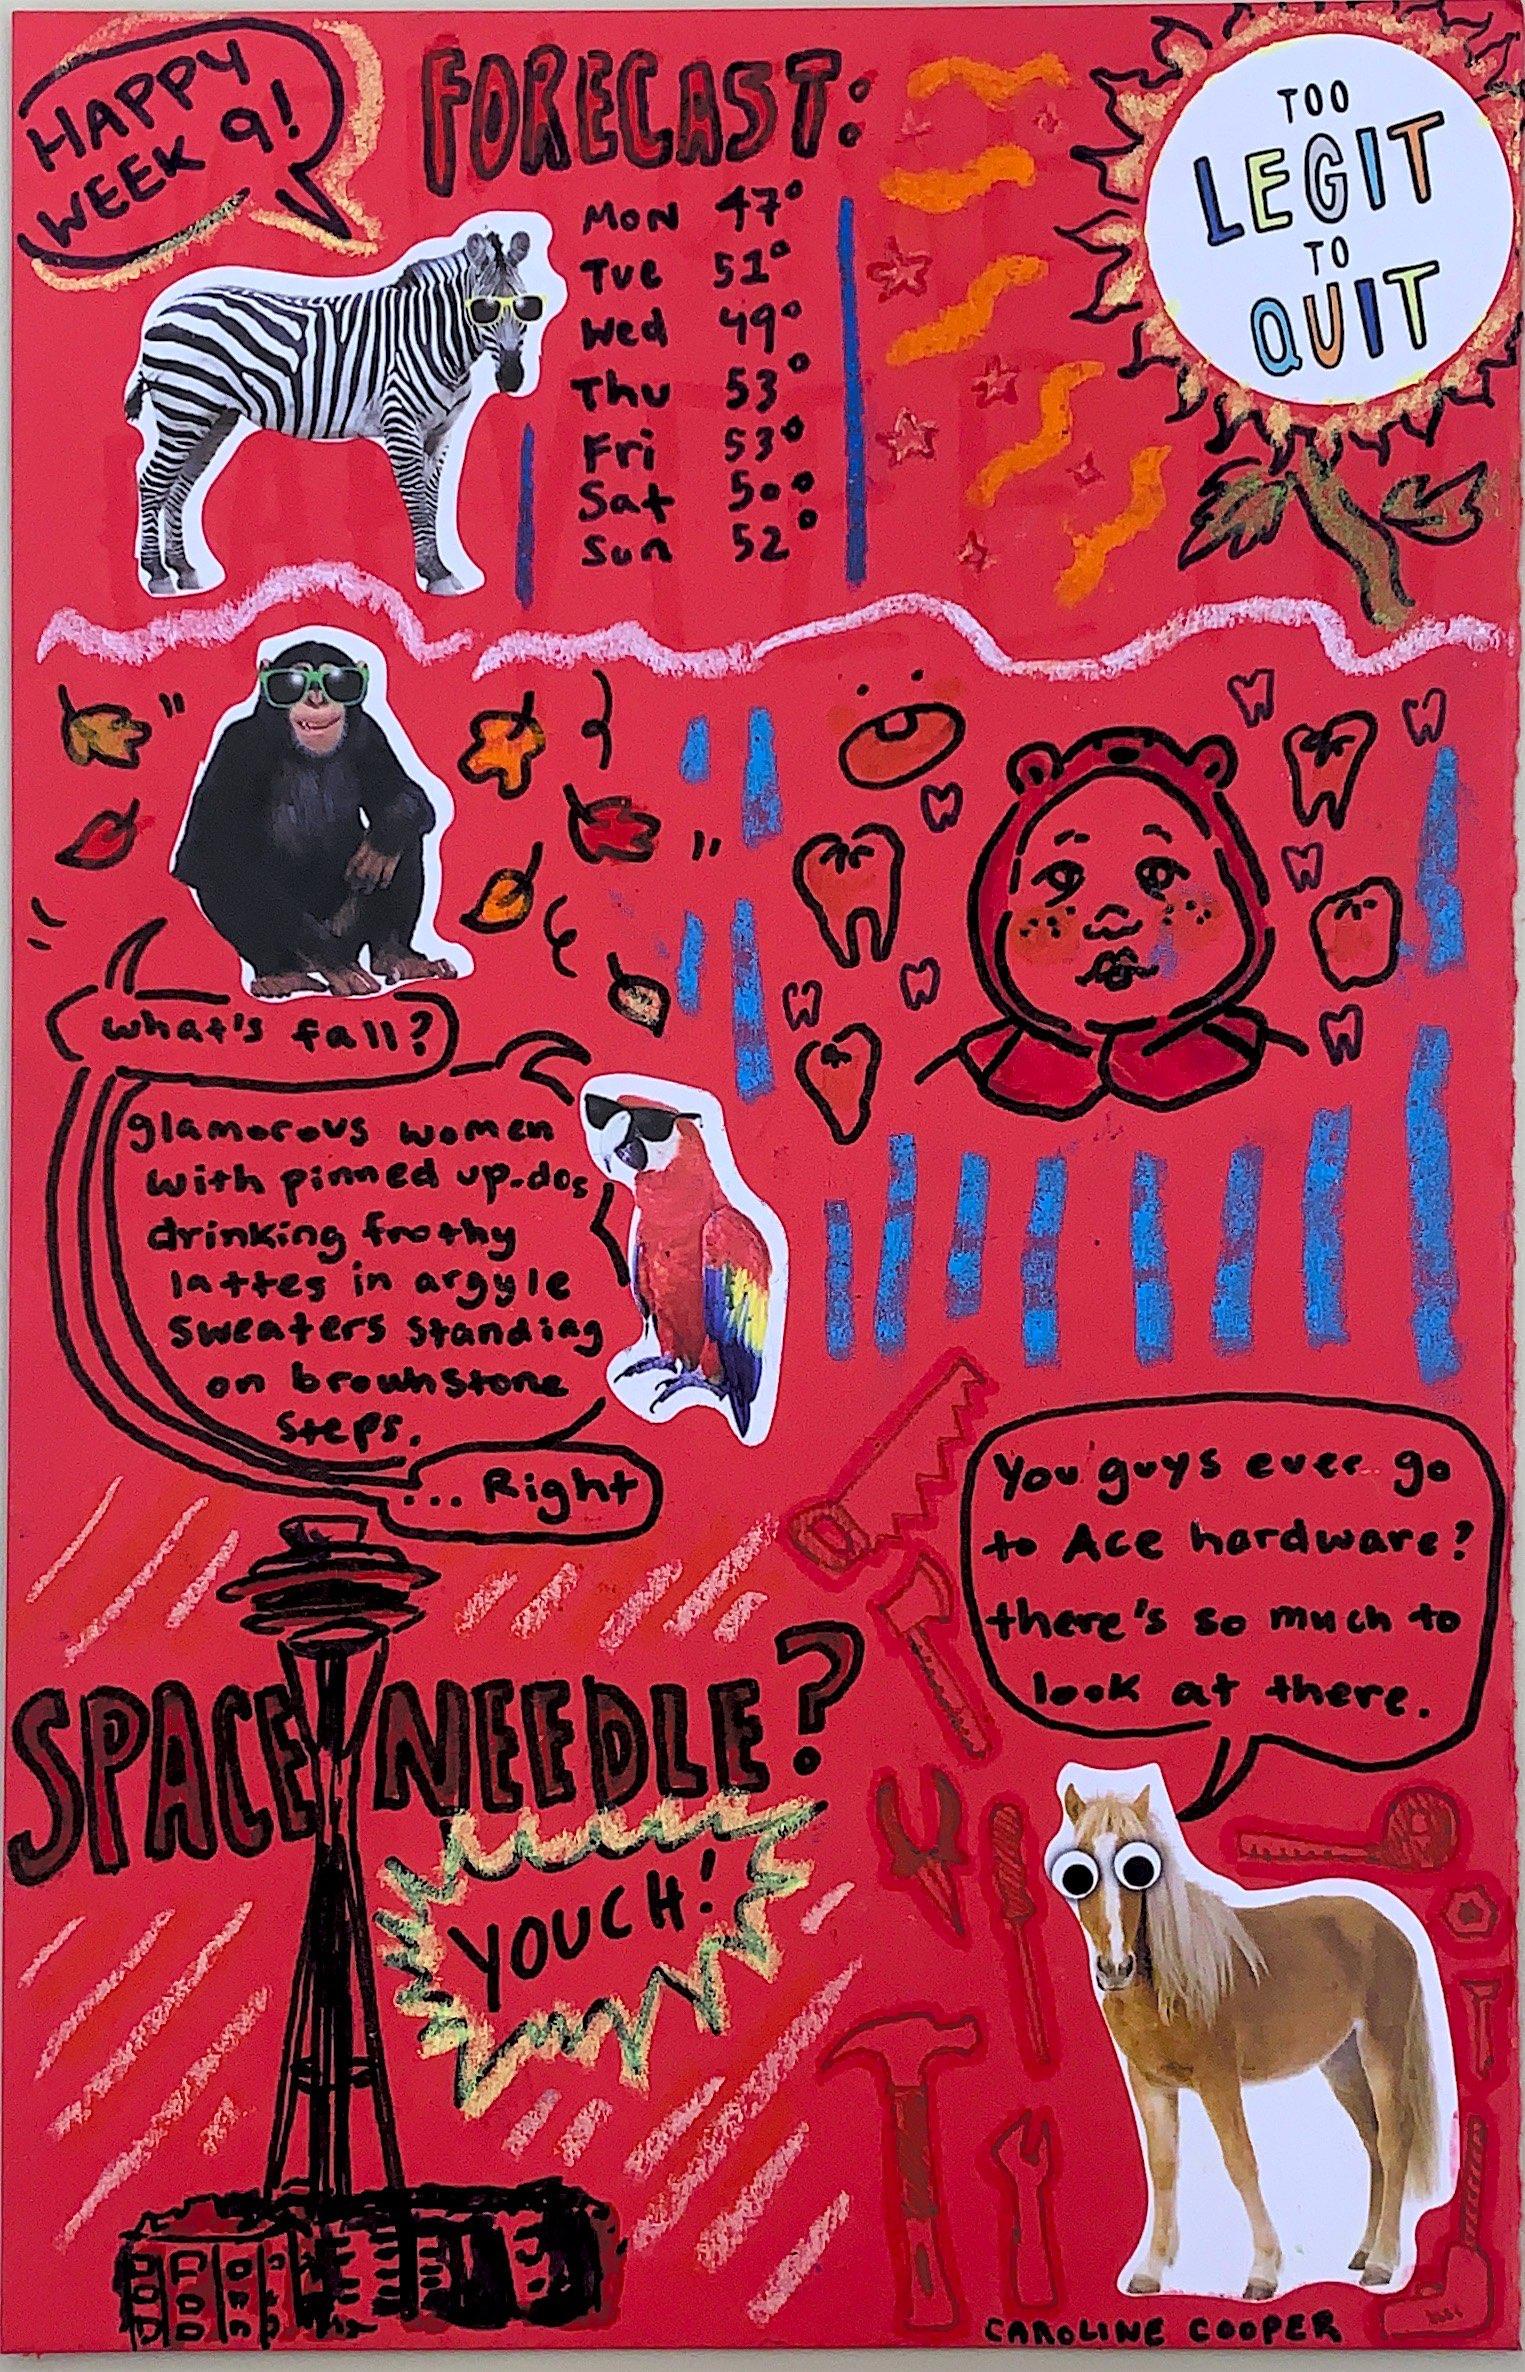 HAPPY
WEEK 9!
FORECAST:
MON 47°
Tue 51°
Wed 49°
Thu 53°
Fri 53°
Sat 50°
Sun 52°
TOO
LEGIT
TO
QUIT
What's fall?
glamorous women
with pinned up-dos
drinking frothy
lattes in argyle
sweaters standing
on brownstone
steps.
... Right
SPACE NEEDLE?
YOUCH!
You guys ever go
to Ace hardware?
there's so much to
look at there.
CAROLINE COOPER